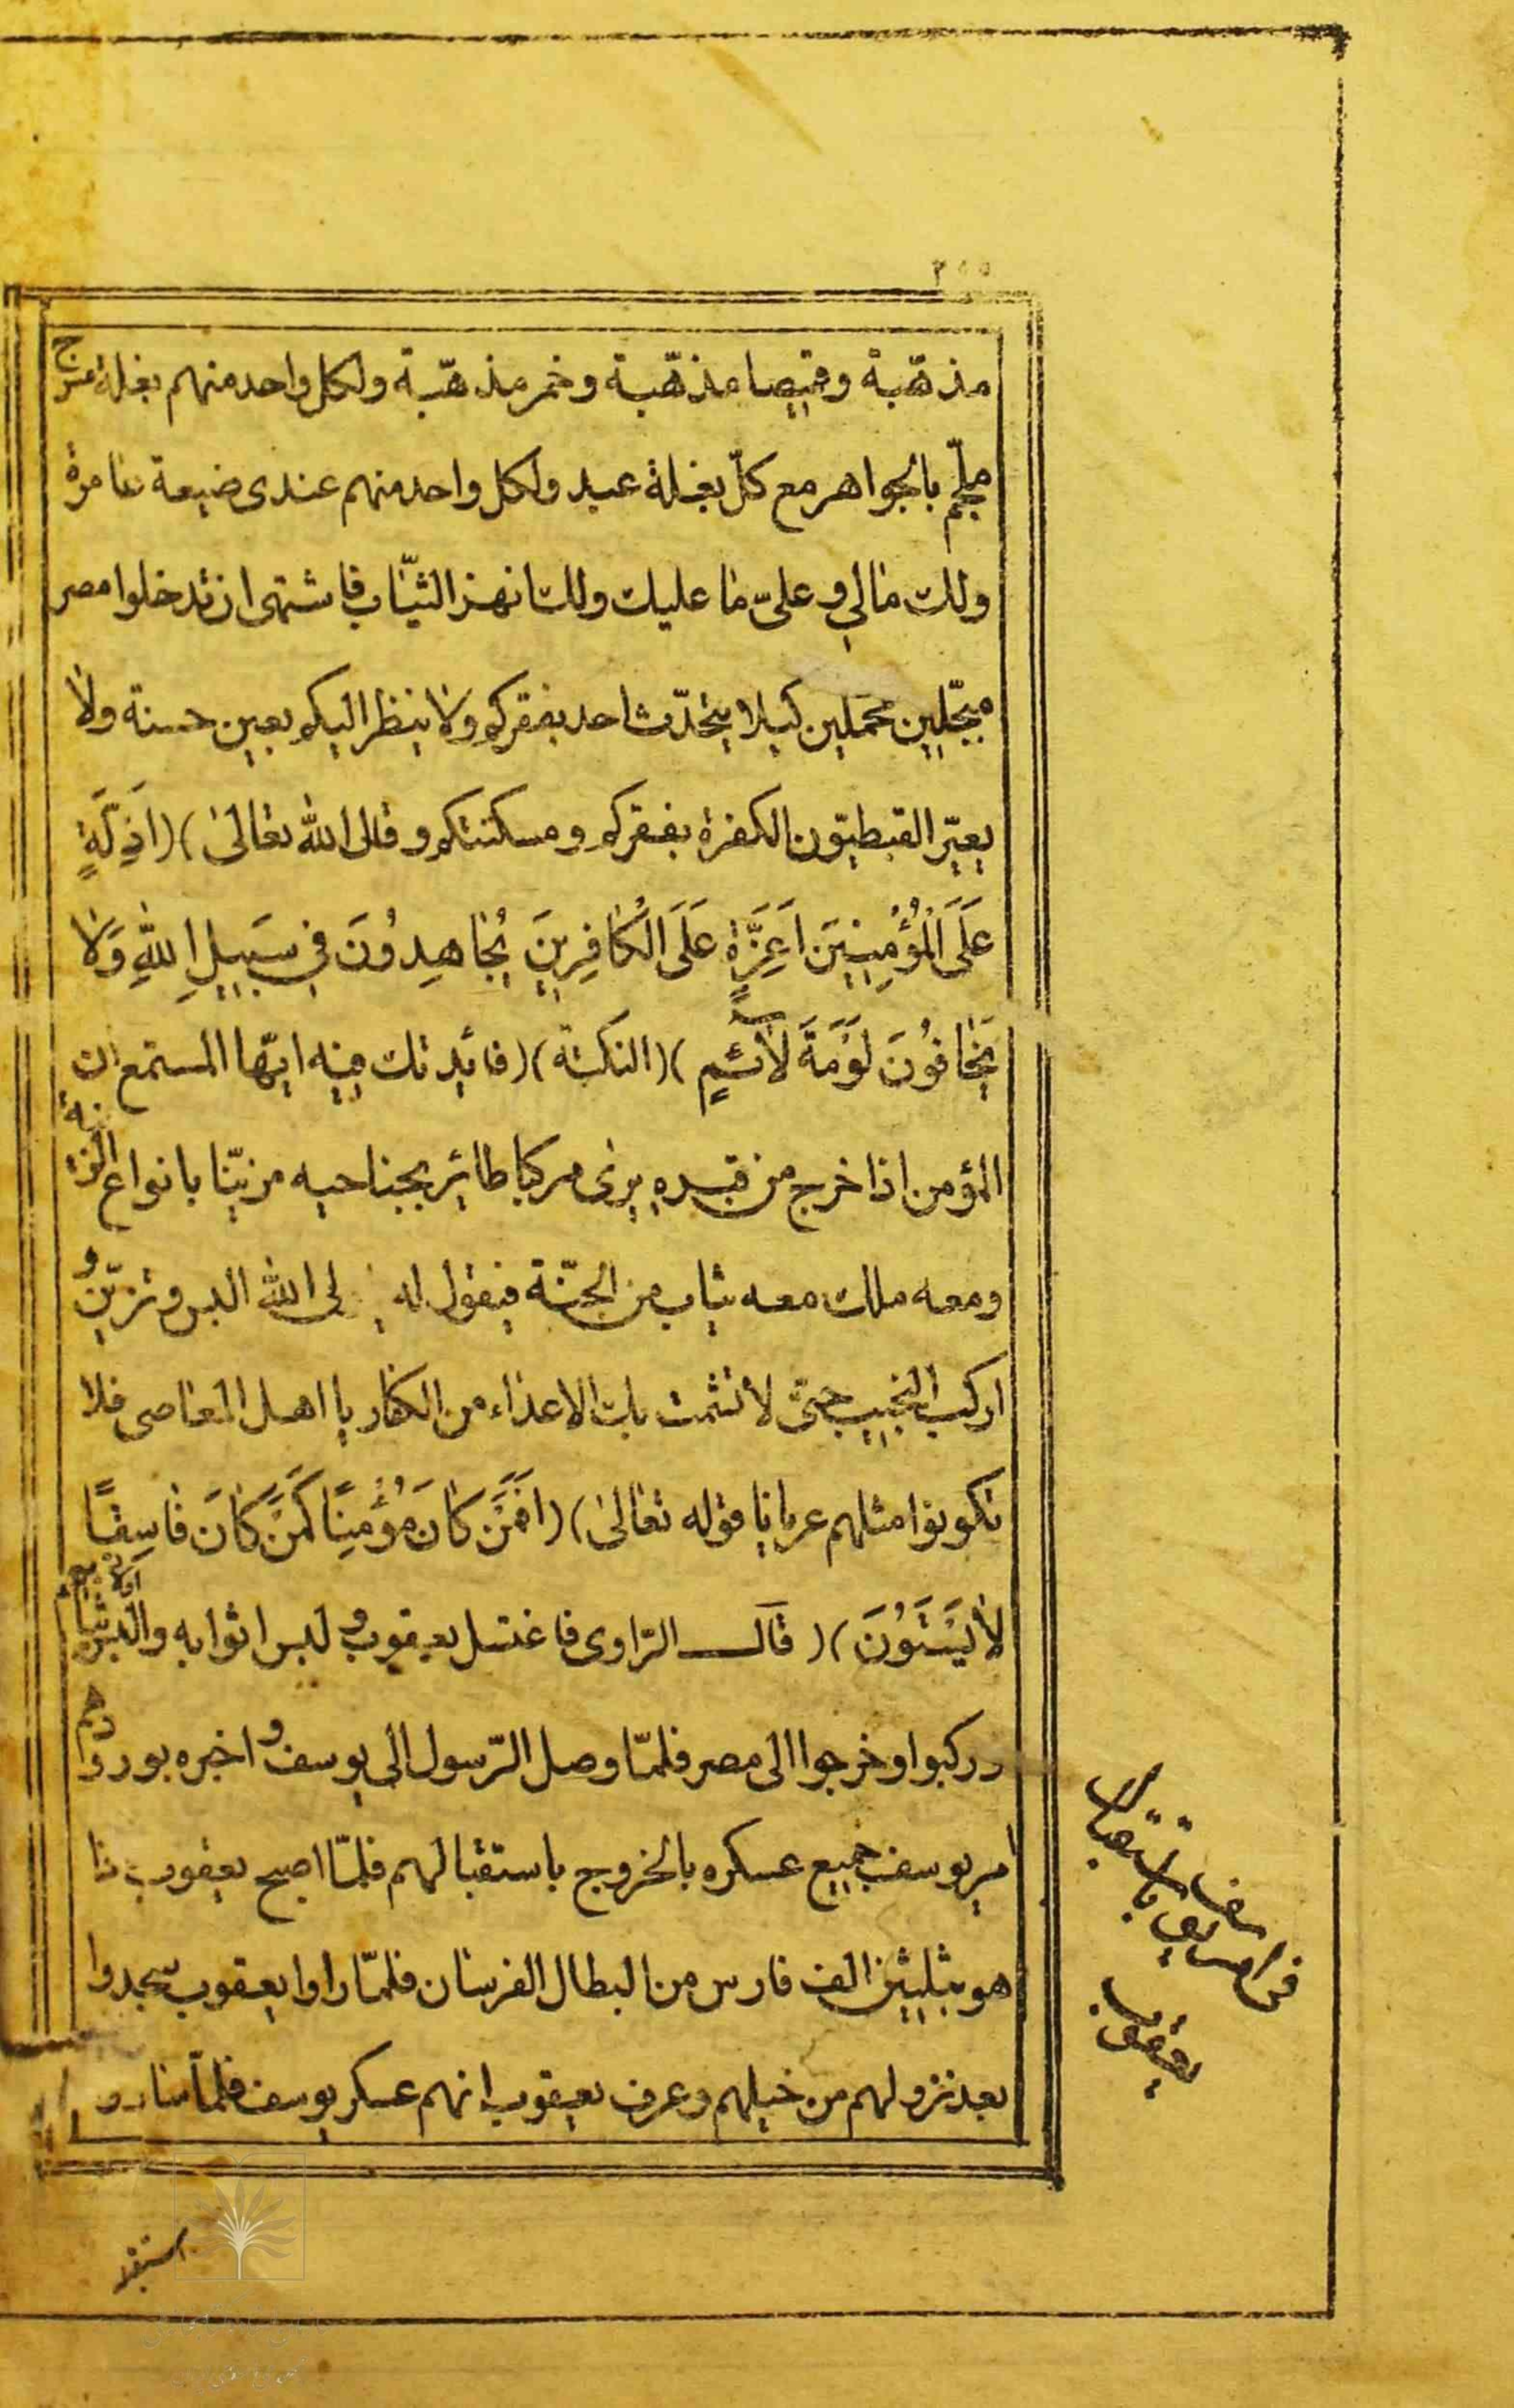 ٢٥٥
مذهّبة وقميصا مذهّبة وخمر مذهّبة ولكل واحد منهم بغلة مسرج
ملجّم بالجواهر مع كلّ بغلة عبد ولكل واحد منهم عندى ضيعة عامرة
ولك مالي و علىّ ما عليك ولك انهذ الثيّاب فاشتهى ان تدخلوا مصر
مبجّلين محملين كيلا يتحدّث احد بفقركم ولا ينظر اليكم بعين حسنة ولا
يعيّر القبطيّون الكفرة بفقركم ومسكنتكم وقال الله تعالىٰ )( اَذِلَّةٍ
عَلَى الْمُؤْمِنِينَ اَعِزَّةٍ عَلَى الْكٰافِرِينَ يُجٰاهِدُونَ في سَبِيلِ اللهِ وَلاٰ
يَخٰافُونَ لَوْمَةَ لاٰئمٍ )( النكتة )( فائدتك فيه ايّها المستمع ان
المؤمن اذا خرج من قبره يرى مركبا طائر بجناحيه مزيّنا بانواع الزينة
ومعه ملك معه ثياب من الجنّة فيقول له لى الله البس وتزيّن و
اركب النجيب حتىّ لا تشمت بك الاعداء من الكفار يا اهل المعاصى فلا
تكونوا مثلهم عريانا قوله تعالىٰ )( اَفَمَنْ كٰانَ مُؤْمِنًا كَمَنْ كٰانَ فٰاسِقًا
لاٰ يَسْتَوُنَ )( قال الرّاوى فاغتسل يعقوب و لبس اثوابه والبس اولاده ثيابهم
وركبوا وخرجوا الى مصر فلمّا وصل الرّسول الي يوسف و اخبره بورودهم
امر يوسف جميع عسكره بالخروج باستقبالهم فلمّا اصبح يعقوب
هو بثلثين الف فارس من البطال الفرسان فلمّا راوا يعقوب سجدوا
بعد نزولهم من خيلهم وعرف يعقوب انهم عسكر يوسف فلمّا
باستقبال
يعقوب
استقبلا